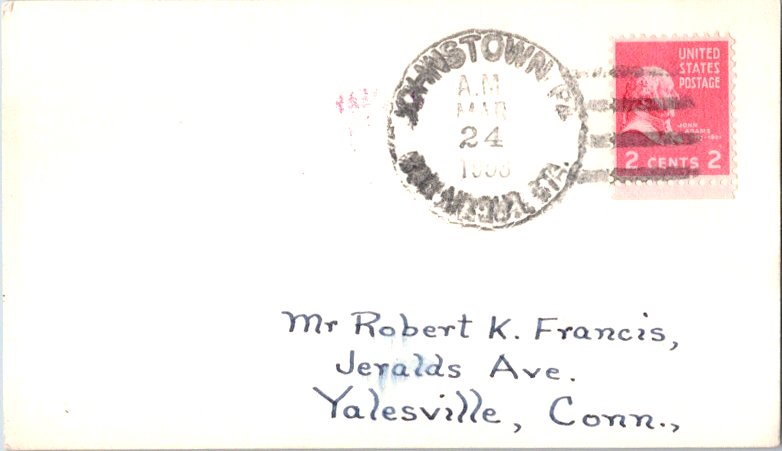 JOHNSTOWN, PA.
A.M.
MAR
24
STA.
UNITED
STATES
POSTAGE
JOHN
ADAMS
2 CENTS 2
Mr Robert K. Francis,
Jeralds Ave.
Yalesville, Conn.,